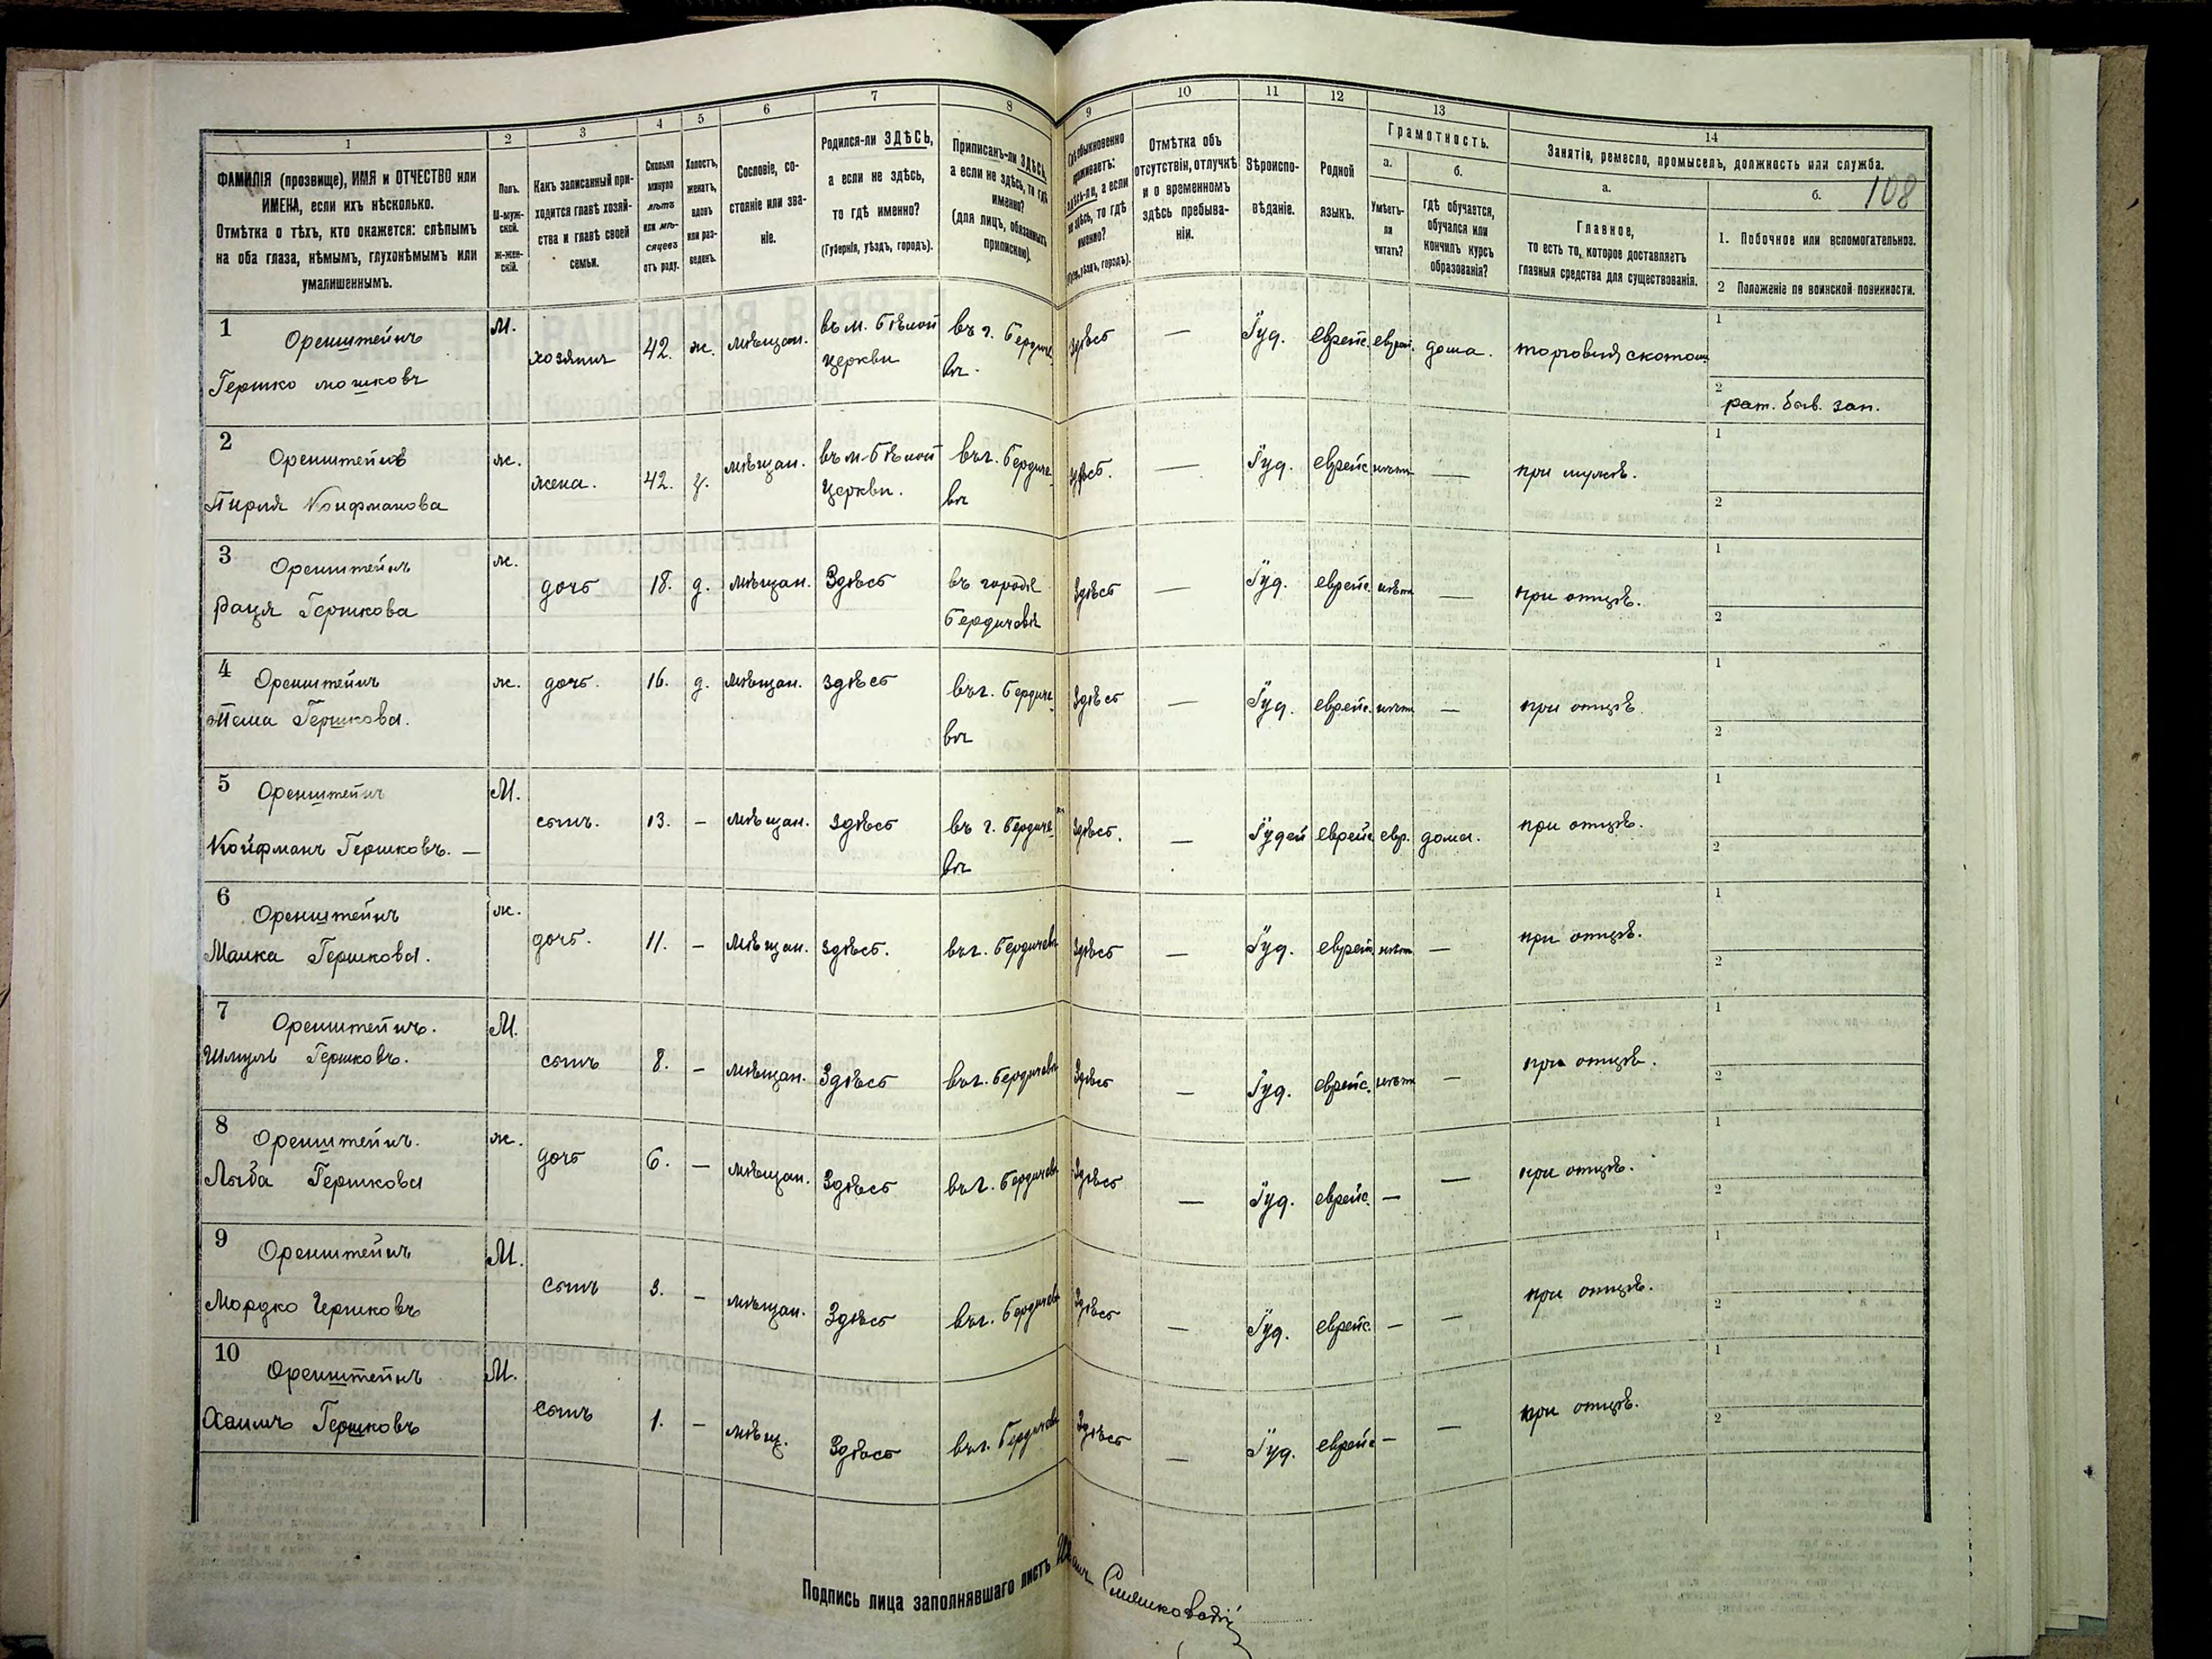 108
1
2
3
4
5
6
7
8
9
10
11
12
13
14
ФАМИЛІЯ (прозвище), ИМЯ и ОТЧЕСТВО или
ИМЕНА, если ихъ нѣсколько.
Отмѣтка о тѣхъ, кто окажется: слѣпымъ
на оба глаза, нѣмымъ, глухонѣмымъ или
умалишеннымъ.
Полъ.
М-муж-
ской.
Ж-жен-
скій.
Какъ записанный при-
ходится главѣ хозяй-
ства и главѣ своей
семьи.
Сколько
минуло
лѣтъ
или мѣ-
сяцевъ
отъ роду.
Холостъ,
женатъ,
вдовъ
или раз-
веденъ.
Сословіе, со-
стояніе или зва-
ніе.
Родился-ли ЗДѢСЬ,
а если не здѣсь,
то гдѣ именно?
(Губернія, уѣздъ, городъ).
Приписанъ-ли ЗДѢСЬ,
а если не здѣсь, то гдѣ
именно?
(для лицъ, обязанныхъ
припискою).
Гдѣ обыкновенно
проживаетъ:
здѣсь-ли, а если
не здѣсь, то гдѣ
именно?
(Губ., уѣздъ, городъ).
Отмѣтка объ
отсутствіи, отлучкѣ
и о временномъ
здѣсь пребыва-
ніи.
Вѣроиспо-
вѣданіе.
Родной
языкъ.
Грамотность.
а.
Умѣетъ-
ли
читать?
б.
гдѣ обучается,
обучался или
кончилъ курсъ
образованія?
Занятія, ремесло, промыселъ, должность или служба.
а.
Главное,
то есть то, которое доставляетъ
главныя средства для существованія.
б.
1. Побочное или вспомогательное.
2 Положеніе по воинской повинности.
1 Оренштейнъ М. хозяинъ 42. ж. мѣщан. въ м. Бѣлой въ г. Бердиче- здѣсь — Іуд. еврейс. еврей. дома. торговля скотомъ 1
Гершко Мошковъ церкви въ. 2 рат. быв. зап.
2 Оренштейнъ ж. жена. 42. з. мѣщан. въ м. Бѣлой въ г. Бердиче- здѣсь. — Іуд. еврейс. нѣтъ — при мужѣ. 1
Пирля Койфманова Церкви. въ 2
3 Оренштейнъ ж. дочь 18. д. мѣщан. Здѣсь въ городѣ Здѣсь — Іуд. еврейс. нѣтъ — при отцѣ. 1
Рація Гершкова Бердичевѣ 2
4 Оренштейнъ ж. дочь. 16. д. мѣщан. здѣсь въ г. Бердиче- Здѣсь — Іуд. еврейс. нѣтъ — при отцѣ. 1
Тема Гершкова. въ 2
5 Оренштейнъ М. сынъ. 13. — мѣщан. здѣсь въ г. Бердиче- Здѣсь. — Іудей еврейс. евр. дома. при отцѣ. 1
Койфманъ Гершковъ. — въ 2
6 Оренштейнъ ж. дочь. 11. — мѣщан. здѣсь. въ г. Бердичевѣ Здѣсь — Іуд. еврейс. нѣтъ — при отцѣ. 1
Малка Гершкова. 2
7 Оренштейнъ. М. сынъ 8. — мѣщан. Здѣсь въ г. Бердичевѣ Здѣсь — Іуд. еврейс. нѣтъ — при отцѣ. 1
Шмуль Гершковъ. 2
8 Оренштейнъ. ж. дочь 6. — мѣщан. Здѣсь въ г. Бердичевѣ Здѣсь — Іуд. еврейс. — — при отцѣ. 1
Гершкова 2
9 Оренштейнъ М. сынъ 3. — мѣщан. Здѣсь въ г. Бердичевѣ Здѣсь — Іуд. еврейс. — — при отцѣ. 1
Мордко Гершковъ 2
10 Оренштейнъ М. сынъ 1. — мѣщ. Здѣсь въ г. Бердичевѣ Здѣсь — Іуд. еврейс — — при отцѣ. 1
Хаимъ Гершковъ 2
Подпись лица заполнявшаго листъ